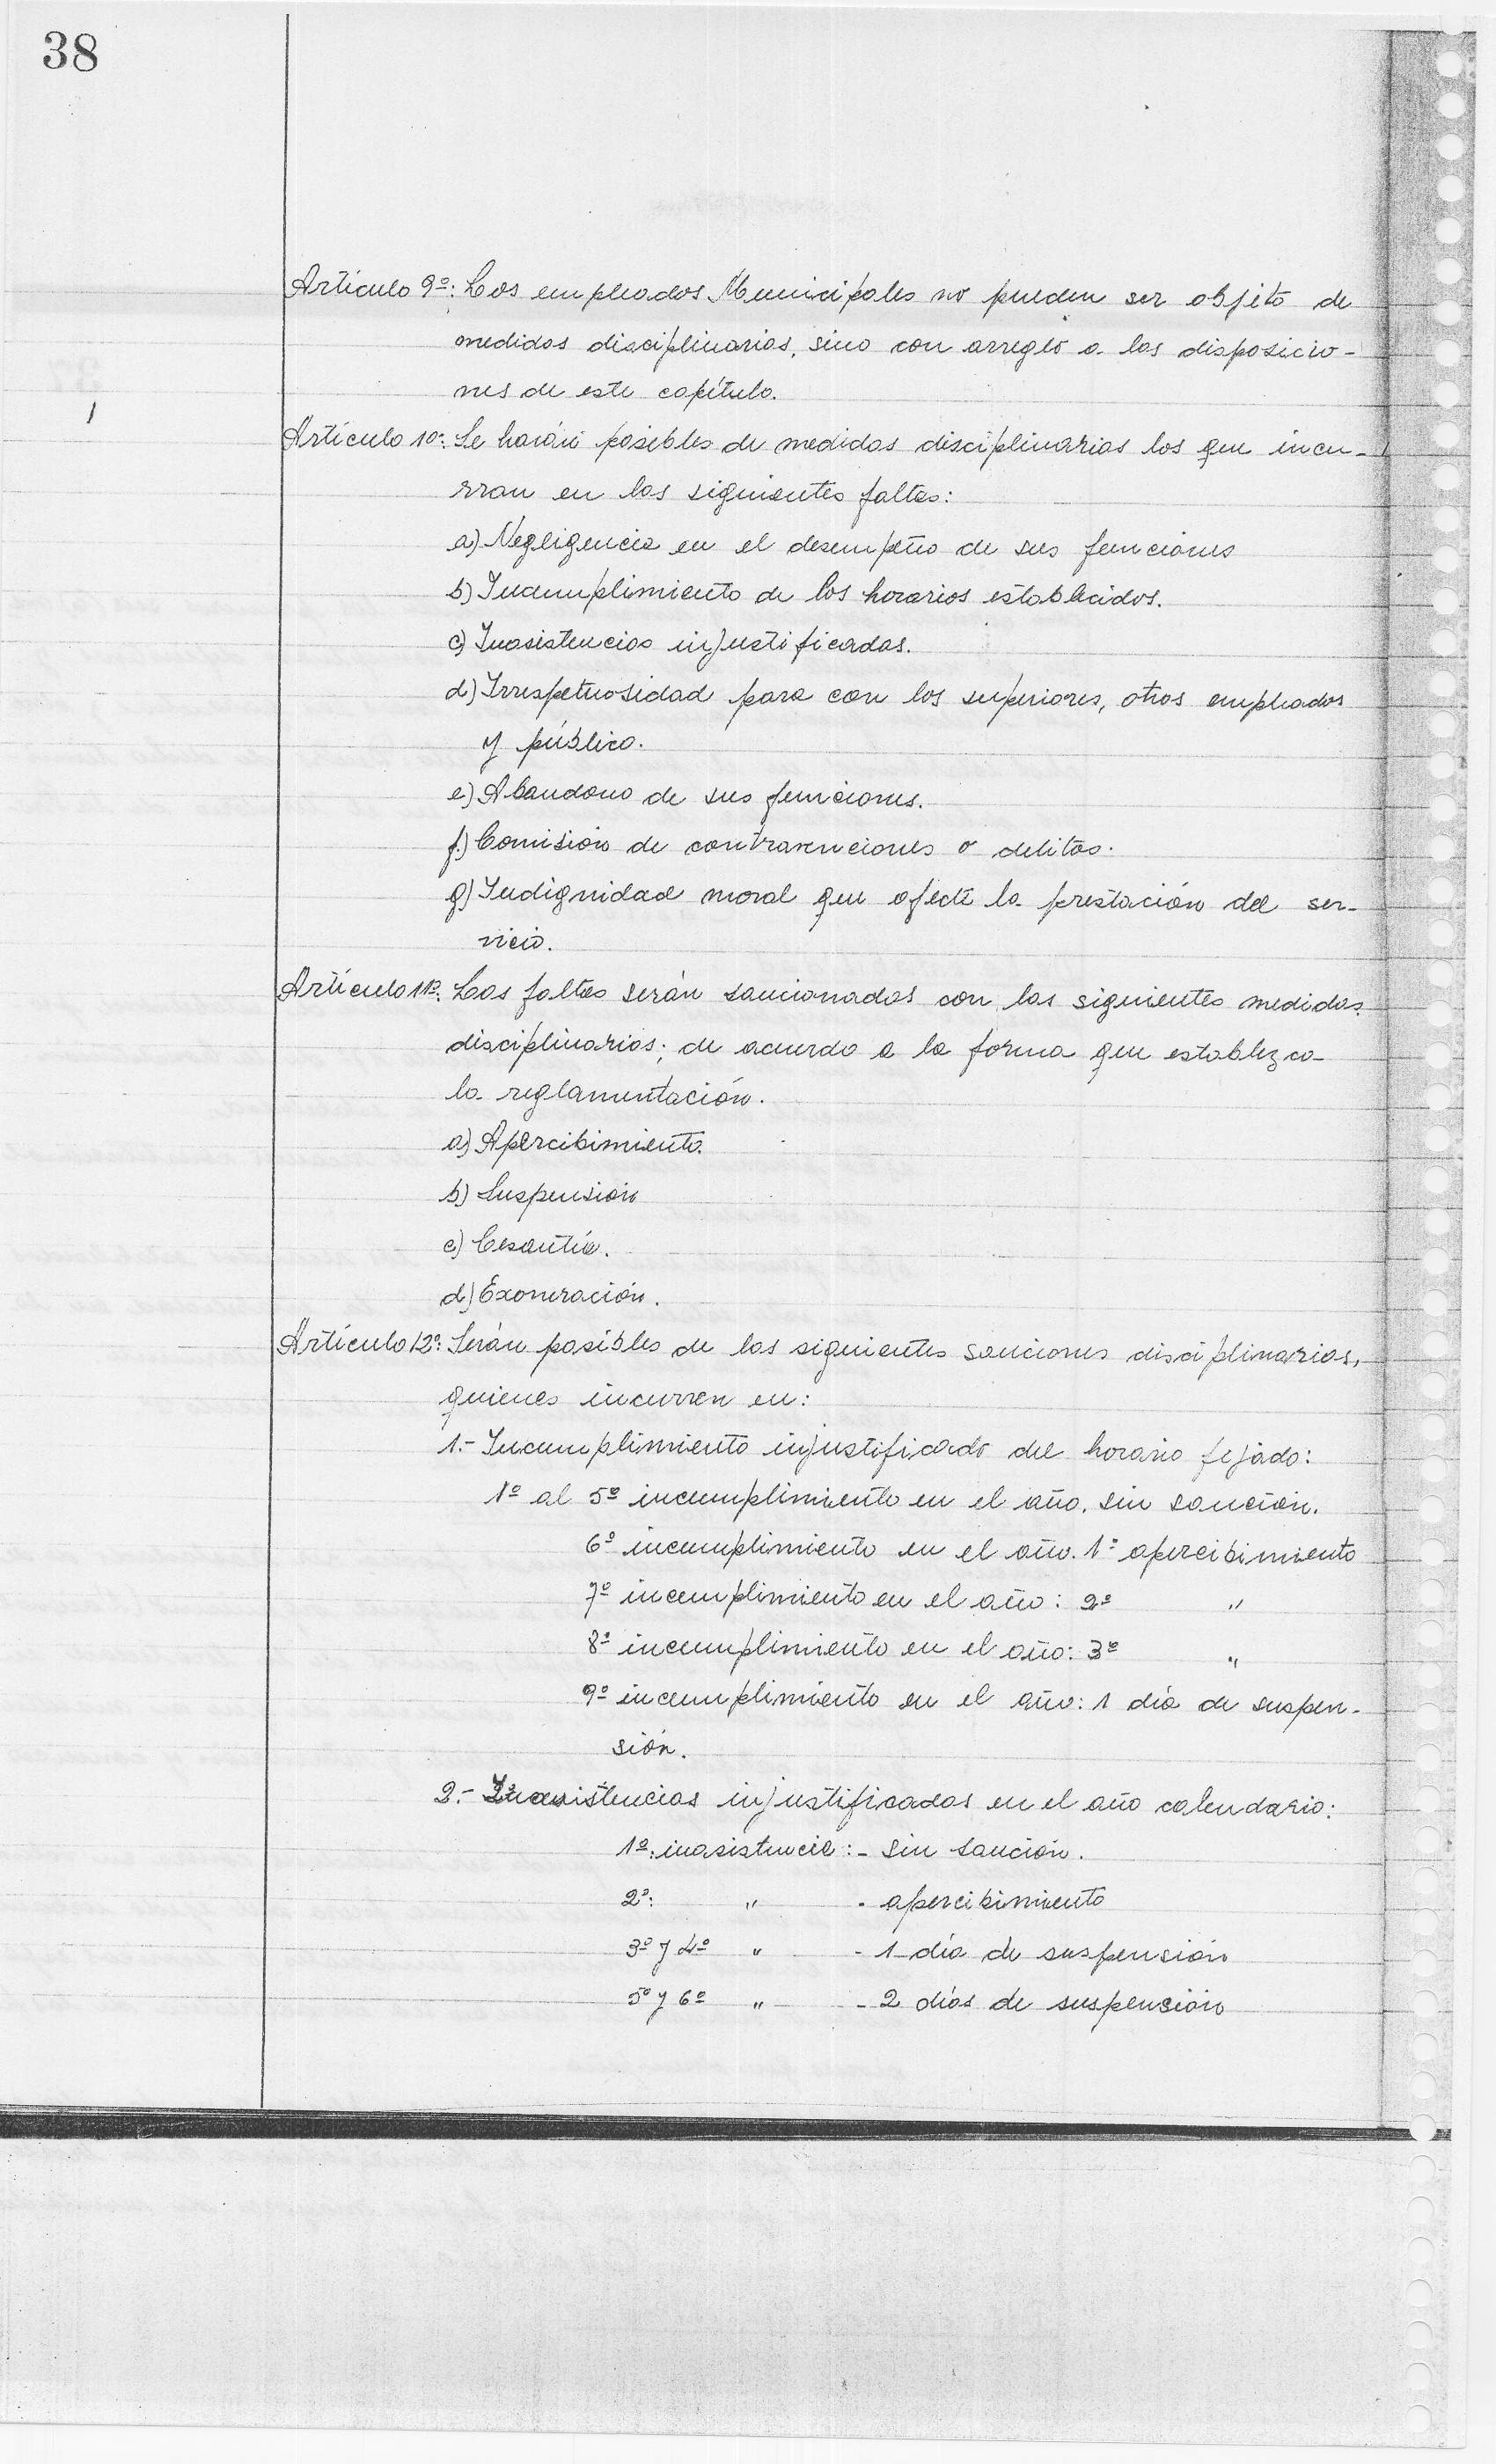 38
Artículo 9º: Los empleados Municipales no pueden ser objeto de
medidas disciplinarias, sino con arreglo a las disposicio-
nes de este capítulo.
Artículo 10º: Se harán pasibles de medidas disciplinarias los que incu-
rran en las siguientes faltas:
a) Negligencia en el desempeño de sus funciones
b) Incumplimiento de los horarios establecidos.
c) Inasistencias injustificadas.
d) Irrespetuosidad para con los superiores, otros empleados
y público.
e) Abandono de sus funciones.
f) Comisión de contravenciones o delitos.
g) Indignidad moral que afecte la prestación del ser-
vicio.
Artículo 11º: Las faltas serán sancionadas con las siguientes medidas
disciplinarias; de acuerdo a la forma que establezca
la reglamentación.
a) Apercibimiento.
b) Suspensión
c) Cesantía.
d) Exoneración.
Artículo 12º: Serán pasibles de las siguientes sanciones disciplinarias,
quienes incurren en:
1.- Incumplimiento injustificado del horario fijado:
1º al 5º incumplimiento en el año. sin sanción.
6º incumplimiento en el año. 1º apercibimiento
7º incumplimiento en el año: 2º "
8º incumplimiento en el año: 3º "
9º incumplimiento en el año: 1 día de suspen-
sión.
2.- Inasistencias injustificadas en el año calendario:
1º: inasistencia: - sin sanción.
2º: " - apercibimiento
3º y 4º " - 1 día de suspensión
5º y 6º " - 2 días de suspensión